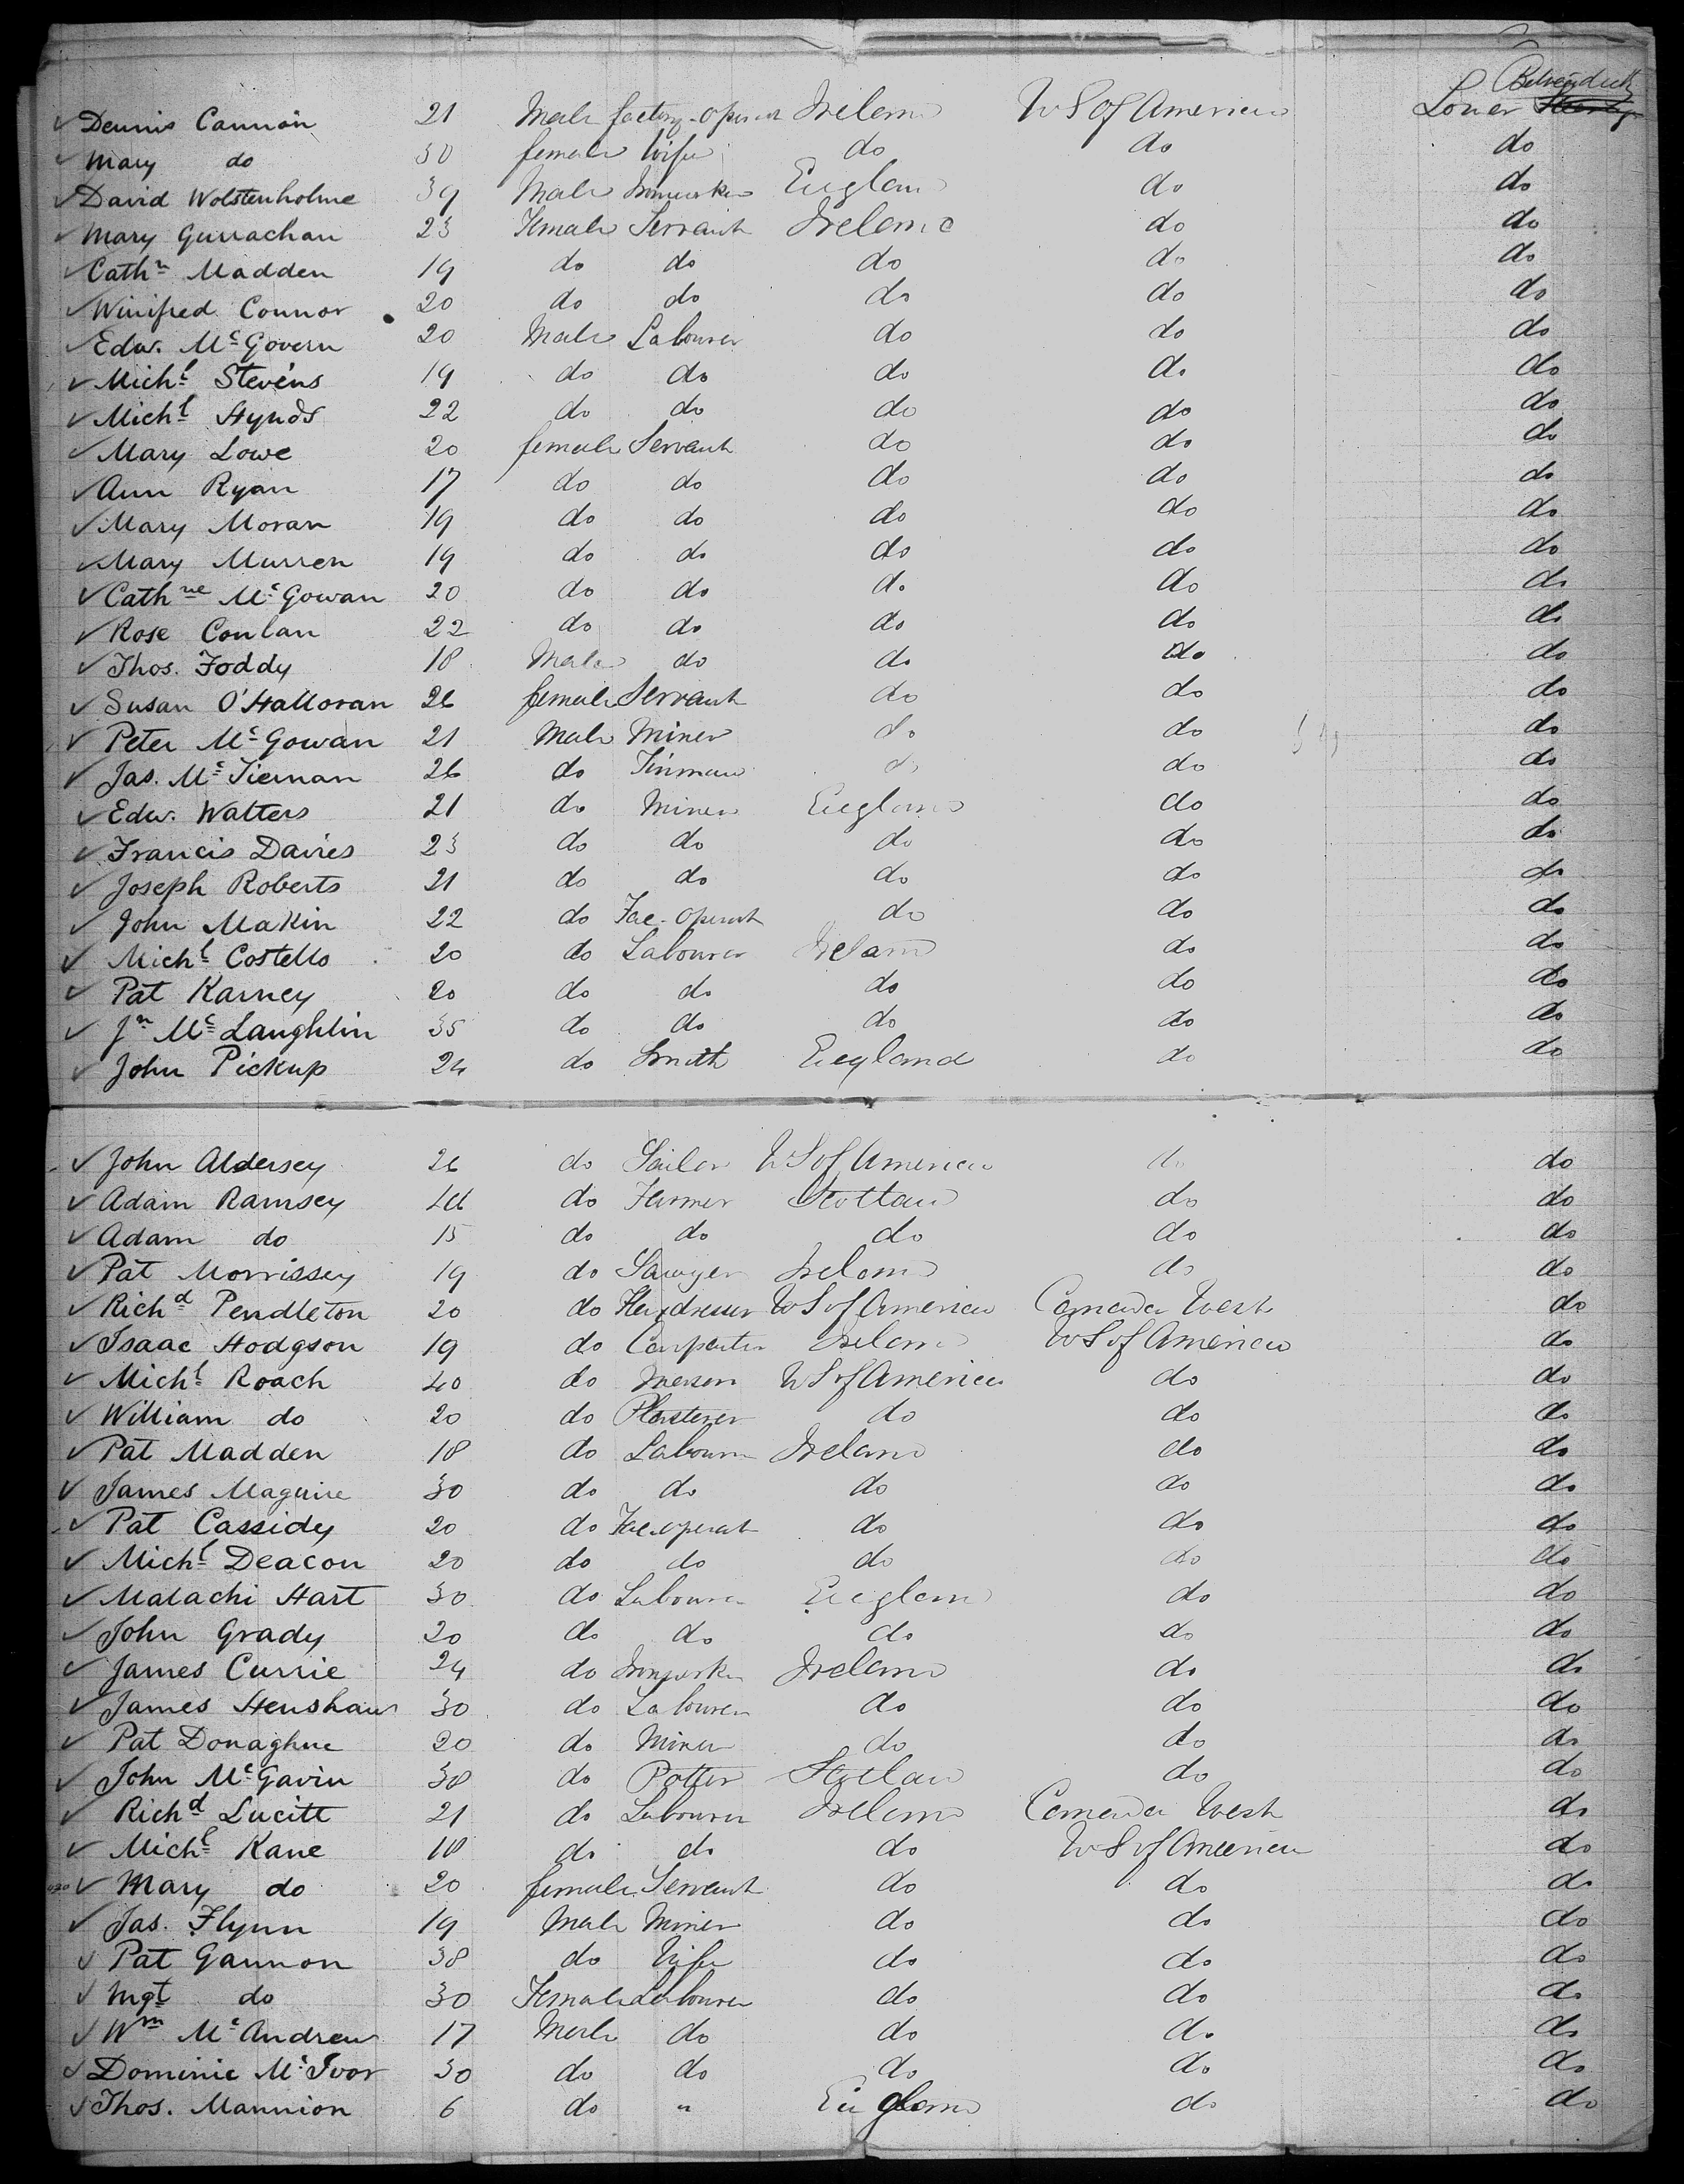 Betweendeck
Dennis Cannon 21 Male factory-operat Ireland US of America Lower
Mary do 30 female Wife do do do
David Wolstenholme 39 Male Ironworker England do do
Mary Gurrachan 23 Female Servant Ireland do do
Cathn Madden 19 do do do do do
Winifred Connor 20 do do do do do
Edw. McGovern 20 Male Labourer do do do
Michl Stevens 19 do do do do do
Michl Hynds 22 do do do do do
Mary Lowe 20 female Servant do do do
Ann Ryan 17 do do do do do
Mary Moran 19 do do do do do
Mary Murren 19 do do do do do
Cathne McGowan 20 do do do do do
Rose Conlan 22 do do do do do
Thos. Foddy 18 Male do do do do
Susan O'Halloran 26 female Servant do do do
Peter McGowan 21 Male Miner do do do
Jas. McTiernan 26 do Tinman do do do
Edw. Watters 21 do Miner England do do
Francis Davies 23 do do do do do
Joseph Roberts 21 do do do do do
John Makin 22 do Fac-operat do do do
Michl Costello 20 do Labourer Ireland do do
Pat Karney 20 do do do do do
Jn McLaughlin 35 do do do do do
John Pickup 24 do Smith England do do
John Aldersey 26 do Sailor US of America do do
Adam Ramsey do Farmer Scotland do do
Adam do 15 do do do do do
Pat Morrissey 19 do Sawyer Ireland do do
Richd Pendleton 20 do US of America Canada West do
Isaac Hodgson 19 do Carpenter Ireland US of America do
Michl Roach 40 do Mason US of America do do
William do 20 do Plasterer do do do
Pat Madden 18 do Labourer Ireland do do
James Maguire 30 do do do do do
Pat Cassidy 20 do Fac-operat do do do
Michl Deacon 20 do do do do do
Malachi Hart 30 do Labourer England do do
John Grady 20 do do do do do
James Currie 24 do Ironworker Ireland do do
James Henshaw 30 do Labourer do do do
Pat Donaghue 20 do Miner do do do
John McGavin 38 do Potter Scotland do do
Richd Lucitt 21 do Labourer Ireland Canada West do
Michl Kane 18 do do do US of America do
Mary do 20 female Servant do do do
Jas. Flynn 19 Male Miner do do do
Pat Gannon 38 do Wife do do do
Mgt do 30 Female Labourer do do do
Wm McAndrew 17 Male do do do do
Dominic McIvor 30 do do do do do
Thos. Mannion 6 do " England do do